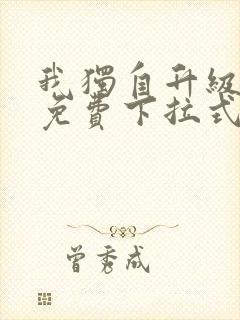 我獨自升級
免費下拉式
曾秀成